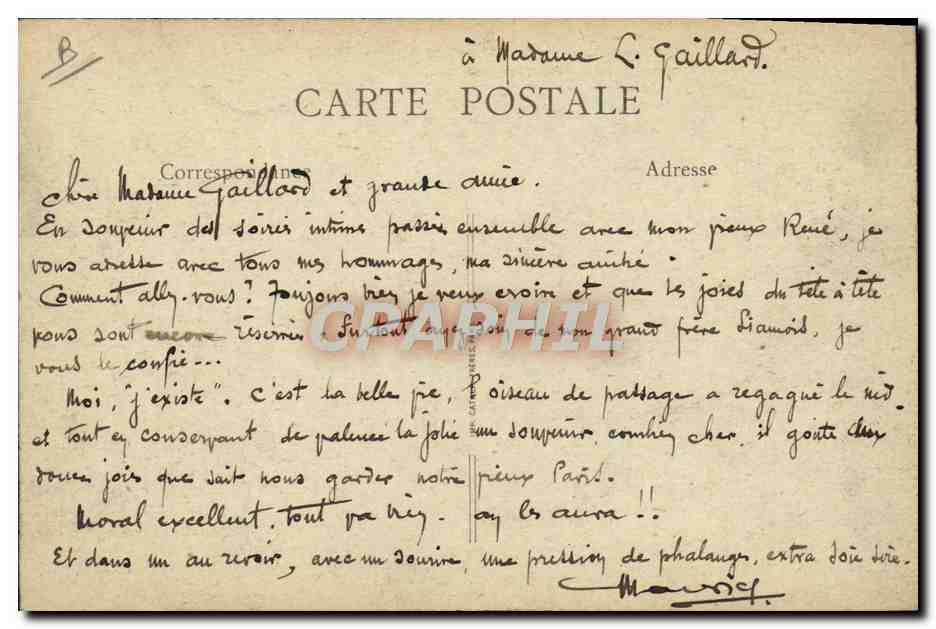 B
à Madame L. Gaillard.
CARTE POSTALE
Correspondance
Adresse
Chère Madame Gaillard et grande amie.
En souvenir des soirées intimes passées ensemble avec mon vieux René, je
vous adresse avec tous mes hommages, ma sincère amitié.
Comment allez-vous? Toujours bien je veux croire et que les joies du tête à tête
vous sont encore réservées. Surtout ayez soin de mon grand frère Siamois, je
vous le confie...
Moi, "j'existe". C'est la belle vie, l'oiseau de passage a regagné le nid.
et tout en conservant de la jolie un souvenir combien cher, il goûte aux
douces joies que sait nous garder notre vieux Paris.
Moral excellent, tout va bien. on les aura!!
Et dans un au revoir, avec un sourire, une pression de phalanges, extra
Maurice
IMP. CATALA FRÈRES, PARIS
CPAPHIL